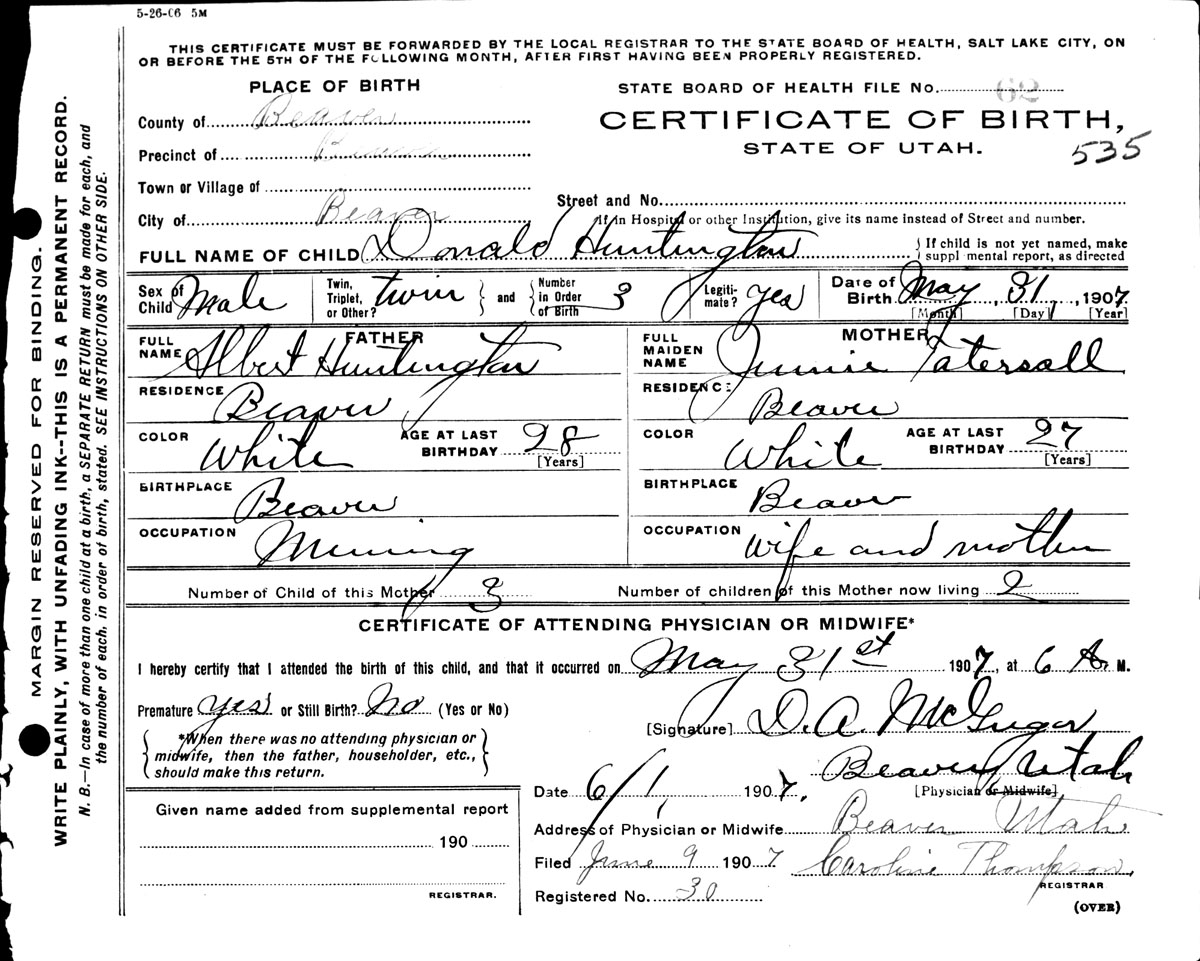 5-26-06 5M
THIS CERTIFICATE MUST BE FORWARDED BY THE LOCAL REGISTRAR TO THE STATE BOARD OF HEALTH, SALT LAKE CITY, ON
OR BEFORE THE 5TH OF THE FOLLOWING MONTH, AFTER FIRST HAVING BEEN PROPERLY REGISTERED.
PLACE OF BIRTH
STATE BOARD OF HEALTH FILE NO. 62
County of Beaver
CERTIFICATE OF BIRTH,
STATE OF UTAH.
535
Precinct of Beaver
Town or Village of
Street and No.
City of Beaver
(If in Hospital or other Institution, give its name instead of Street and number.
FULL NAME OF CHILD Donald Huntington
If child is not yet named, make
supplmental report, as directed
Sex of Child Male
Twin, Triplet, or Other? twin and Number in Order of Birth 3
Legiti-mate? yes
Date of Birth May 31, 1907
[Month] [Day] [Year]
FATHER
FULL NAME Albert Huntington
RESIDENCE Beaver
COLOR White AGE AT LAST BIRTHDAY 28 [Years]
BIRTHPLACE Beaver
OCCUPATION Mining
MOTHER
FULL MAIDEN NAME Jennie Tatersall
RESIDENCE Beaver
COLOR White AGE AT LAST BIRTHDAY 27 [Years]
BIRTHPLACE Beaver
OCCUPATION wife and mother
Number of Child of this Mother 3 Number of children of this Mother now living 2
CERTIFICATE OF ATTENDING PHYSICIAN OR MIDWIFE*
I hereby certify that I attended the birth of this child, and that it occurred on May 31st 1907, at 6 A. M.
Premature yes or Still Birth? No (Yes or No)
*When there was no attending physician or
midwife, then the father, householder, etc.,
should make this return.
[Signature] D. A. McGregor
Beaver, Utah
[Physician or Midwife]
Date 6/1, 1907.
Given name added from supplemental report
190
REGISTRAR.
Address of Physician or Midwife Beaver Utah
Filed June 9 1907 Caroline Thompson
REGISTRAR
Registered No. 30
(OVER)
MARGIN RESERVED FOR BINDING.
WRITE PLAINLY, WITH UNFADING INK--THIS IS A PERMANENT RECORD.
N. B.—In case of more than one child at a birth, a SEPARATE RETURN must be made for each, and
the number of each, in order of birth, stated. SEE INSTRUCTIONS ON OTHER SIDE.